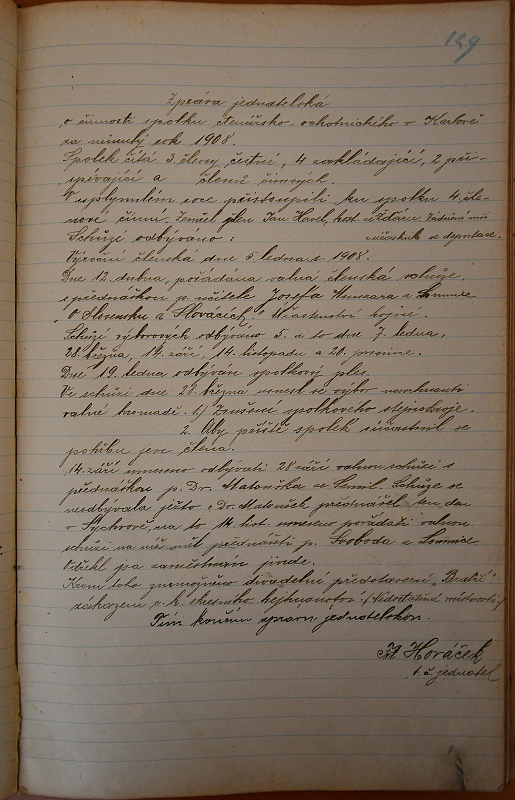 129
Zpráva jednatelská
o činnosti spolku čtenářsko ochotnického v Karlově
za minulý rok 1908.
Spolek čítá 3 členy čestné, 4 zakládající, 2 při-
spívající a členů činných.
V uplynulém roce přistoupili ku spolku 4 čle-
nové činní. Zemřel člen Jan Havel,
Schůze odbýváno: súčastnil se deputace.
Výroční členská dne 5. ledna r. 1908.
Dne 12. dubna, pořádána valná členská schůze,
s přednáškou p. učitele Josefa z Lomnice
"O Slovensku a Slovácích," Účastenství hojné.
Schůzí výborových odbýváno 5. a to dne 7. ledna,
28. března, 14. září, 14. listopadu a 20. prosince.
Dne 19. ledna odbýván spolkový ples.
Ve schůzi dne 28. března usnesl se výbor navrhnouti
valné hromadě. 1./ Zrušení spolkového stejnokroje.
2. Aby příště spolek súčastnil se
pohřbu jen člena.
14. září usneseno odbývati 28 září valnou schůzi s
přednáškou p. Dr. Matouška ze Semil. Schůze se
neodbývala ježto p. Dr. Matoušek přednášel ten den
v Sychrově, na to 14. list. usneseno pořádati valnou
schůzi na níž měl přednášeti p. Svoboda z Lomnice
Odřekl jsa zaměstnán jinde.
Krom toho znemožněno divadelní představení, "
zakázení c. k. okresního hejtmanství :/ Nedostatečné místnosti :/
Tím končím zprávu jednatelskou.
Horáček
t. č. jednatel